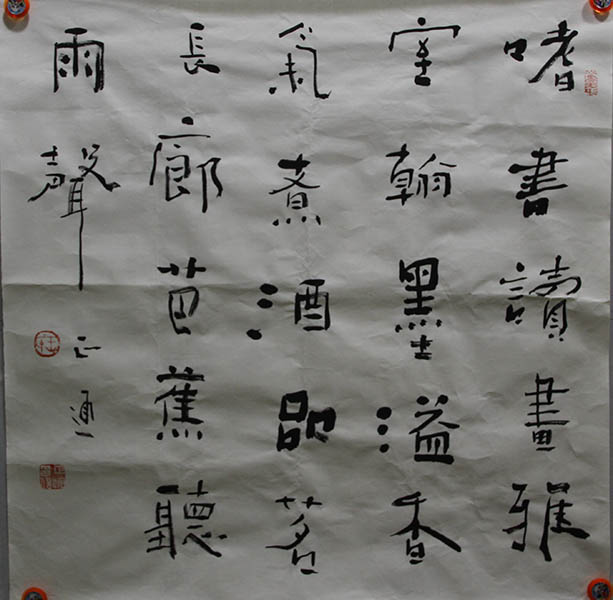 嗜書讀畫雅
室翰墨溢香
氣煮酒品茗
長廊芭蕉聽
雨聲 正通